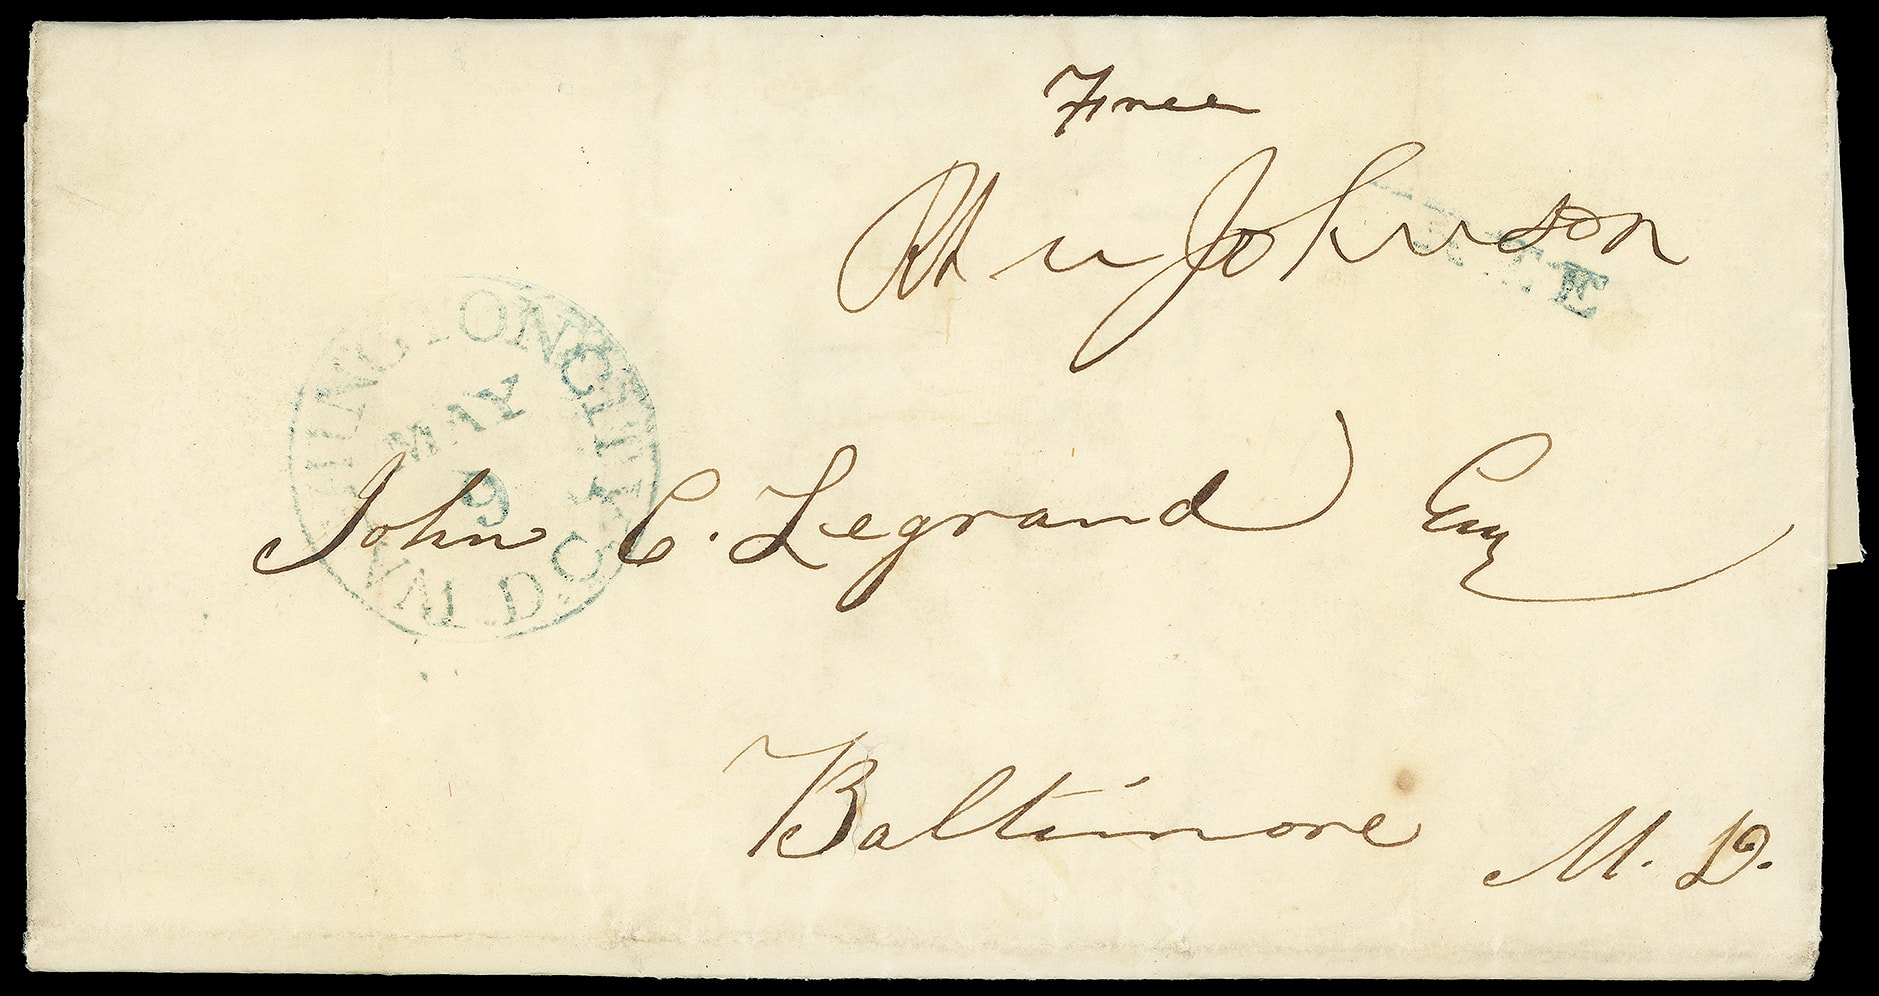 Free
Rh M Johnson
WASHINGTON CITY D.C.
MAY
9
John C. Legrand Esq
Baltimore M. D.